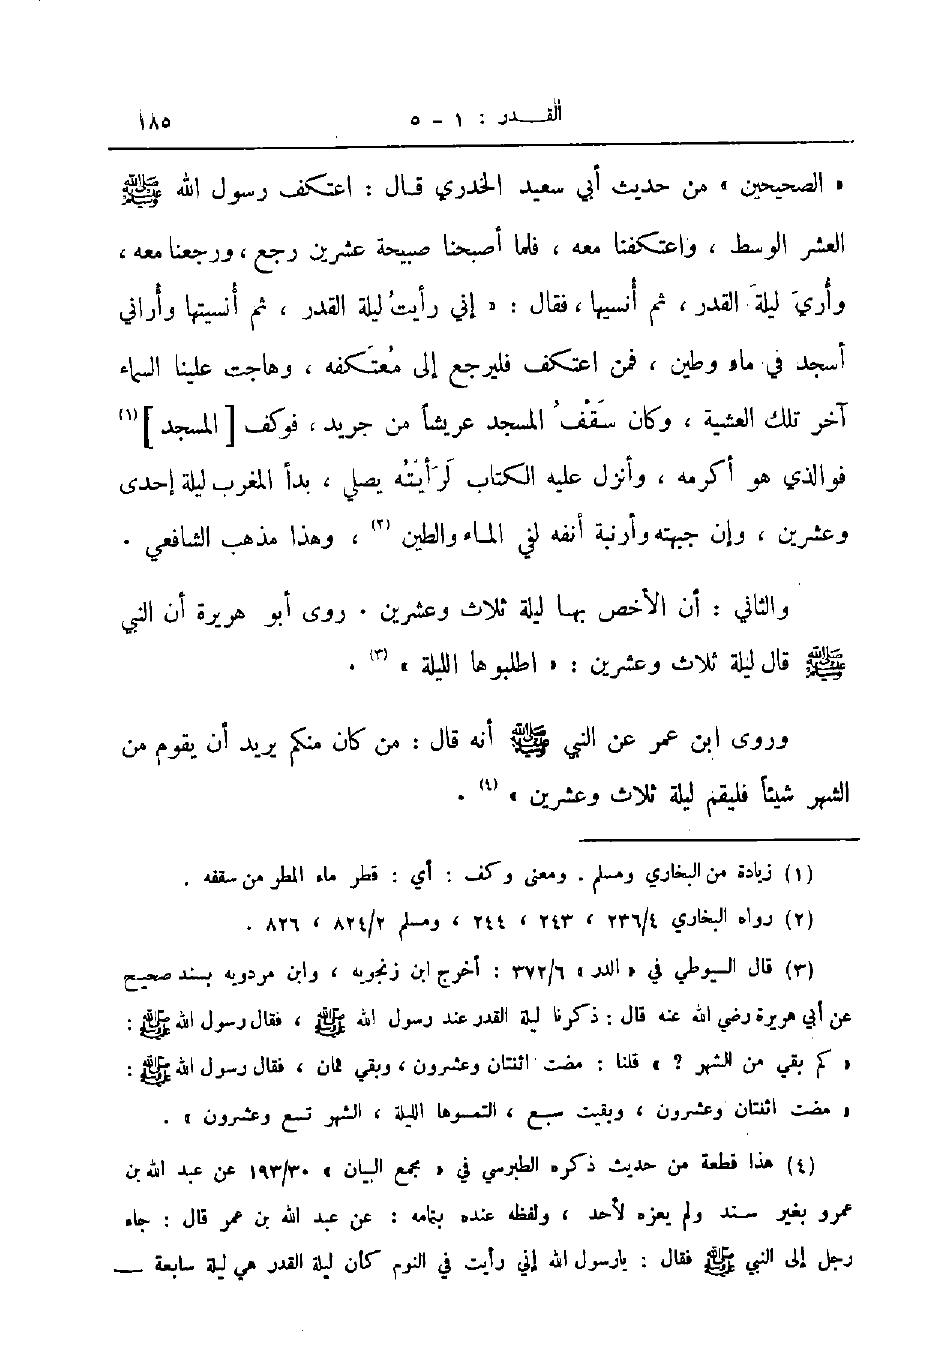 القدر : ١ - ٥ ١٨٥
« الصحيحين » من حديث أبي سعيد الخدري قال : اعتكف رسول الله ﷺ
العشر الوسط ، واعتكفنا معه ، فلما أصبحنا صبيحة عشرين رجع ، ورجعنا معه ،
وأُريَ ليلةَ القدر ، ثم أُنسيها ، فقال : « إني رأيتُ ليلة القدر ، ثم أُنسيتها وأُراني
أسجد في ماء وطين ، فمن اعتكف فليرجع إلى مُعتَكفه ، وهاجت علينا السماء
آخر تلك العشية ، وكان سَقْفُ المسجد عريشاً من جريد ، فوكف [ المسجد ] (١)
فوالذي هو أكرمه ، وأنزل عليه الكتاب لَرَأيتُه يصلي ، بدأ المغرب ليلة إحدى
وعشرين ، وإن جبهته وأرنبة أنفه لفي الماء والطين (٢) ، وهذا مذهب الشافعي .
والثاني : أن الأخص بها ليلة ثلاث وعشرين . روى أبو هريرة أن النبي
ﷺ قال ليلة ثلاث وعشرين : « اطلبوها الليلة » (٣) .
وروى ابن عمر عن النبي ﷺ أنه قال : من كان منكم يريد أن يقوم من
الشهر شيئاً فليقم ليلة ثلاث وعشرين » (٤) .
(١) زيادة من البخاري ومسلم . ومعنى وكف : أي : قطر ماء المطر من سقفه .
(٢) رواه البخاري ٢٣٦/٤ ، ٢٤٣ ، ٢٤٤ ، ومسلم ٨٢٤/٢ ، ٨٢٦ .
(٣) قال السيوطي في « الدر » ٣٧٢/٦ : أخرج ابن زنجويه ، وابن مردويه بسند صحيح
عن أبي هريرة رضي الله عنه قال : ذكرنا ليلة القدر عند رسول الله ﷺ ، فقال رسول الله ﷺ :
« كم بقي من الشهر ؟ » قلنا : مضت اثنتان وعشرون ، وبقي ثمان ، فقال رسول الله ﷺ :
« مضت اثنتان وعشرون ، وبقيت سبع ، التمسوها الليلة ، الشهر تسع وعشرون » .
(٤) هذا قطعة من حديث ذكره الطبرسي في « مجمع البيان » ١٩٣/٣٠ عن عبد الله بن
عمرو بغير سند ولم يعزه لأحد ، ولفظه عنده بتمامه : عن عبد الله بن عمر قال : جاء
رجل إلى النبي ﷺ فقال : يارسول الله إني رأيت في النوم كأن ليلة القدر هي ليلة سابعة ــ